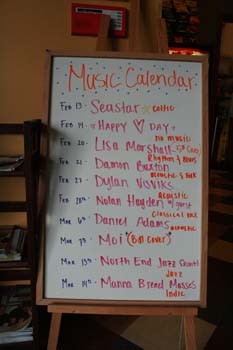 Music Calendar
Feb 13 - Seastar ☆ Celtic
Feb 14 - Happy ♡ Day
Feb 20 - Lisa Marshall
no music
Feb 21 - Damon Buxton
Rhythm & Blues
Feb 27 - Dylan
acoustic & folk
Feb 28th - Nolan Hayden w/ guest
acoustic
Mar 6th - Daniel Adams
Classical
acoustic
Mar 7th - Moi (Bill Cover)
Mar 13th - North End Jazz
Jazz
Mar 14th - Manna Bread Masses
Indie